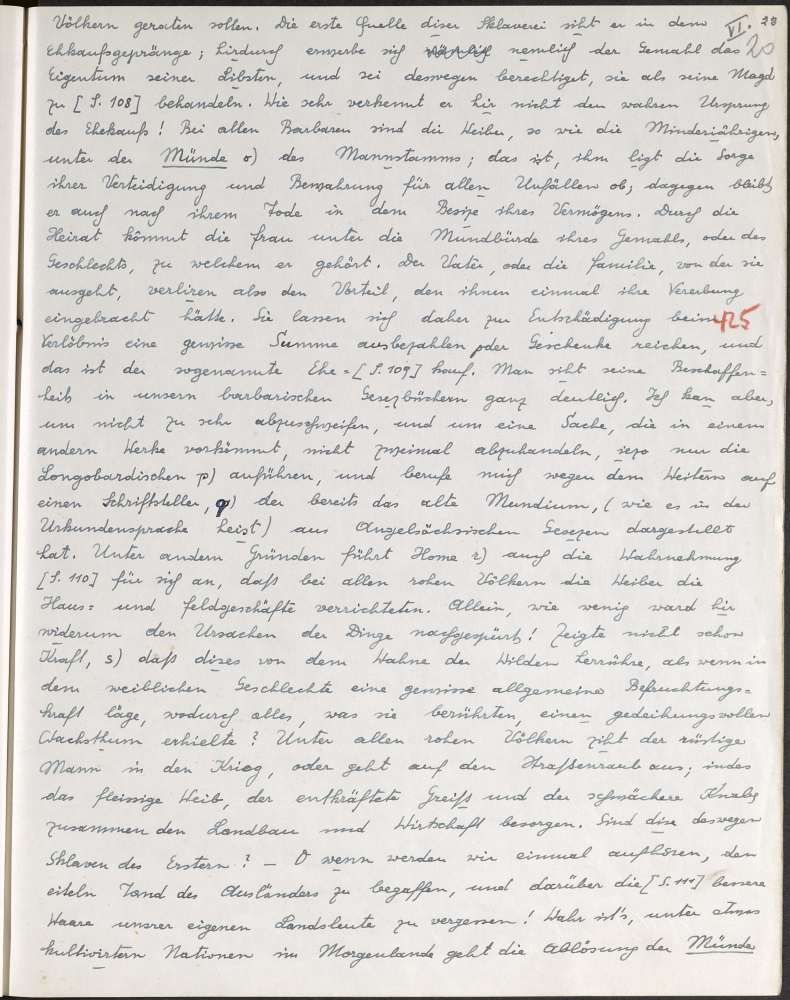 Völkern geraten sollen. Die erste Quelle diser Sklaverei siht er in dem VI. 23
Ehkaufsgepränge; hirdurch erwerbe sich nemlich der Gemahl das 20
Eigentum seiner Libsten, und sei deswegen berechtiget, sie als seine Magd
zu [S. 108] behandeln. Wie sehr verkennt er hir nicht den wahren Ursprung
des Ehekaufs! Bei allen Barbaren sind die Weiber, so wie die Minderjährigen,
unter der Münde o) des Mannstamms; das ist, ihm ligt die Sorge
ihrer Verteidigung und Bewahrung für allen Unfällen ob; dagegen bleibt
er auch nach ihrem Tode in dem Besize ihres Vermögens. Durch die
Heirat kömmt die Frau unter die Mundbürde ihres Gemahls, oder des
Geschlechts, zu welchem er gehört. Der Vater, oder die Familie, von der sie
ausgeht, verliren also den Vorteil, den ihnen einmal ihre Vererbung
eingebracht hätte. Sie lassen sich daher zur Entschädigung beim 425
Verlöbnis eine gewisse Summe ausbezahlen oder Geschenke reichen, und
das ist der sogenannte Ehe=[S. 109] kauf. Man siht seine Beschaffen=
heit in unsern barbarischen Gesezbüchern ganz deutlich. Ich kan aber,
um nicht zu sehr abzuschweifen, und um eine Sache, die in einem
andern Werke vorkömmt, nicht zweimal abzuhandeln, iezo nur die
Longobardischen p) anführen, und berufe mich wegen dem Weitern auf
einen Schriftsteller, q) der bereits das alte Mundium, (wie es in der
Urkundensprache heist) aus Angelsächsischen Gesezen dargestellt
hat. Unter andern Gründen führt Home r) auch die Wahrnehmung
[S. 110] für sich an, dass bei allen rohen Völkern die Weiber die
Haus= und Feldgeschäfte verrichteten. Allein, wie wenig ward hir
widerum den Ursachen der Dinge nachgespürt! Zeigte nicht schon
Kraft, s) dass dises von dem Wahne der Wilden herrühre, als wenn in
dem weiblichen Geschlechte eine gewisse allgemeine Befeuchtungs=
kraft läge, wodurch alles, was sie berührten, einen gedeihungsvollen
Wachsthum erhielte? Unter allen rohen Völkern ziht der rüstige
Mann in den Krieg, oder geht auf den Strassenraub aus; indes
das fleissige Weib, der entkräftete Greiss und der schwächere Knabe
zusammen den Landbau und Wirtschaft besorgen. Sind dise deswegen
Sklaven des Erstern? — O wenn werden wir einmal aufhören, den
eiteln Tand des Ausländers zu begaffen, und darüber die [S. 111] bessere
Waare unsrer eigenen Landsleute zu vergessen! Wahr ist's, unter etwas
kultivirtern Nationen im Morgenlande geht die Ablösung der Münde